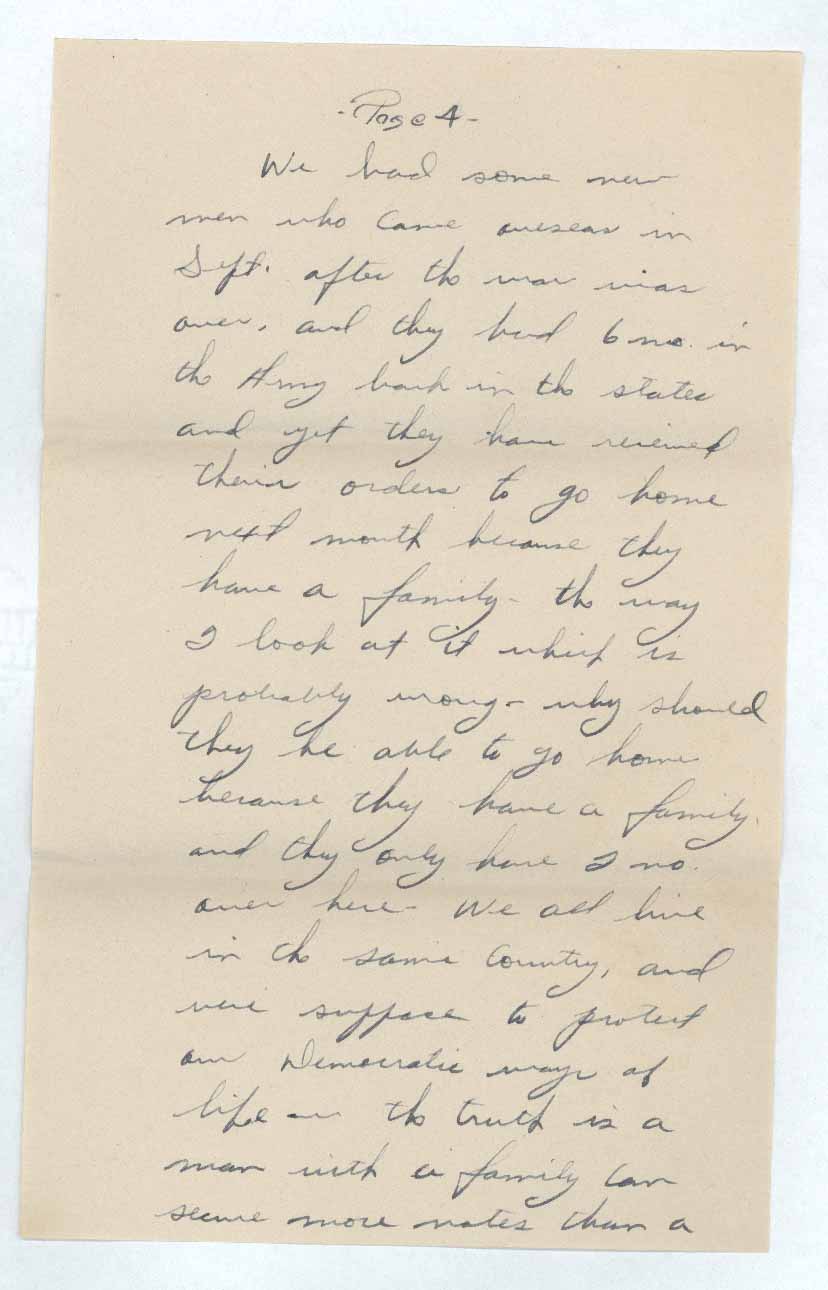 - Page 4 -
We had some new
men who came overseas in
Sept. after the war was
over, and they had 6 mo. in
the Army back in the states
and yet they have received
their orders to go home
next month because they
have a family - the way
I look at it which is
probably wrong - why should
they be able to go home
because they have a family.
and they only have 2 mo.
over here - We all live
in the same Country, and
were suppose to protect
our Democratic ways of
life - the truth is a
man with a family can
secure more votes than a